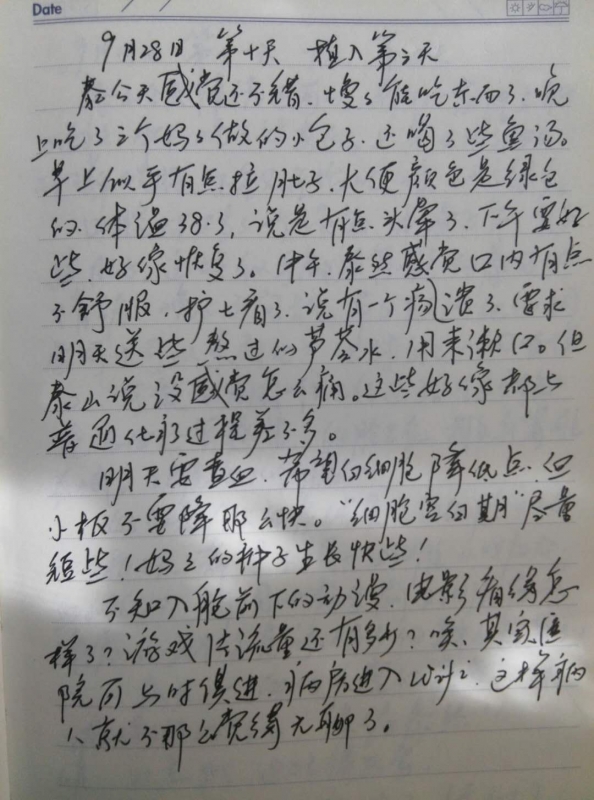 Date
9月28日 第十天 植入第二天
泰公今天感觉还不错,慢慢能吃东西了,晚
上吃了三个妈妈做的小包子,还喝了些鱼汤。
早上似乎有点拉肚子,大便颜色是绿色
的,体温38.3,说是有点头晕了,下午要好
些,好像恢复了。中午,泰然感觉口内有点
不舒服,护士看了,说有一个病溃了,要求
明天送些熬过的萝荟水,用来漱口。但
泰山说没感觉怎么痛。这些好像都与
普通化疗过程差不多。
明天要查血,希望白细胞降低点,但
小板不要降那么快。“细胞空白期”尽量
短些!妈妈的种子生长快些!
不知入舱前下的动漫、电影看得怎
样了?游戏 流量还有多少?唉,其实医
院可与时俱进,病房进入wifi,这样病
人就不那么觉得无聊了。